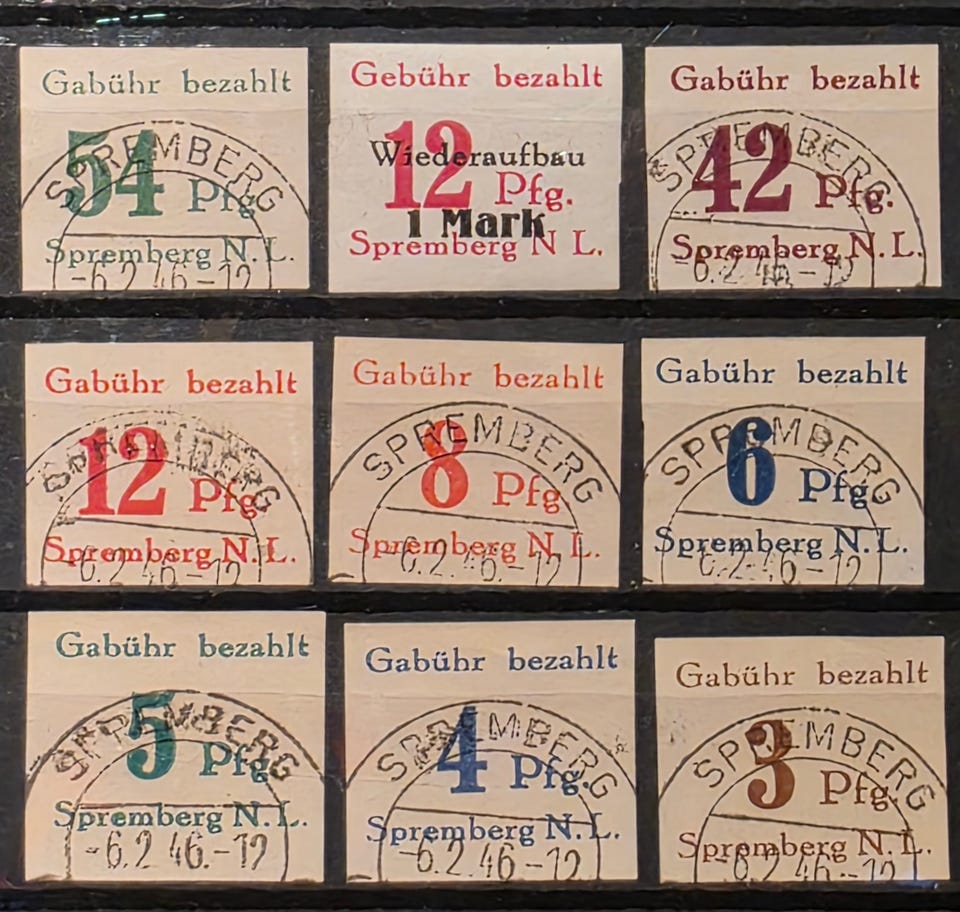 Gabühr bezahlt
54 Pfg.
Spremberg N. L.
SPREMBERG
-6.2.46-12
Gebühr bezahlt
12 Pfg.
Wiederaufbau
1 Mark
Spremberg N L.
Gabühr bezahlt
42 Pfg.
Spremberg N. L.
SPREMBERG
-6.2.46.-12
Gabühr bezahlt
12 Pfg.
Spremberg N. L.
SPREMBERG
-6.2.46.-12
Gabühr bezahlt
8 Pfg
Spremberg N. L.
SPREMBERG
-6.2.46.-12
Gabühr bezahlt
6 Pfg
Spremberg N. L.
SPREMBERG
-6.2.46-12
Gabühr bezahlt
5 Pfg
Spremberg N. L.
SPREMBERG
-6.2 46.-12
Gabühr bezahlt
4 Pfg.
Spremberg N. L.
SPREMBERG
-6.2.46-12
Gabühr bezahlt
3 Pfg.
Spremberg N. L.
SPREMBERG
-6.2.46.-12